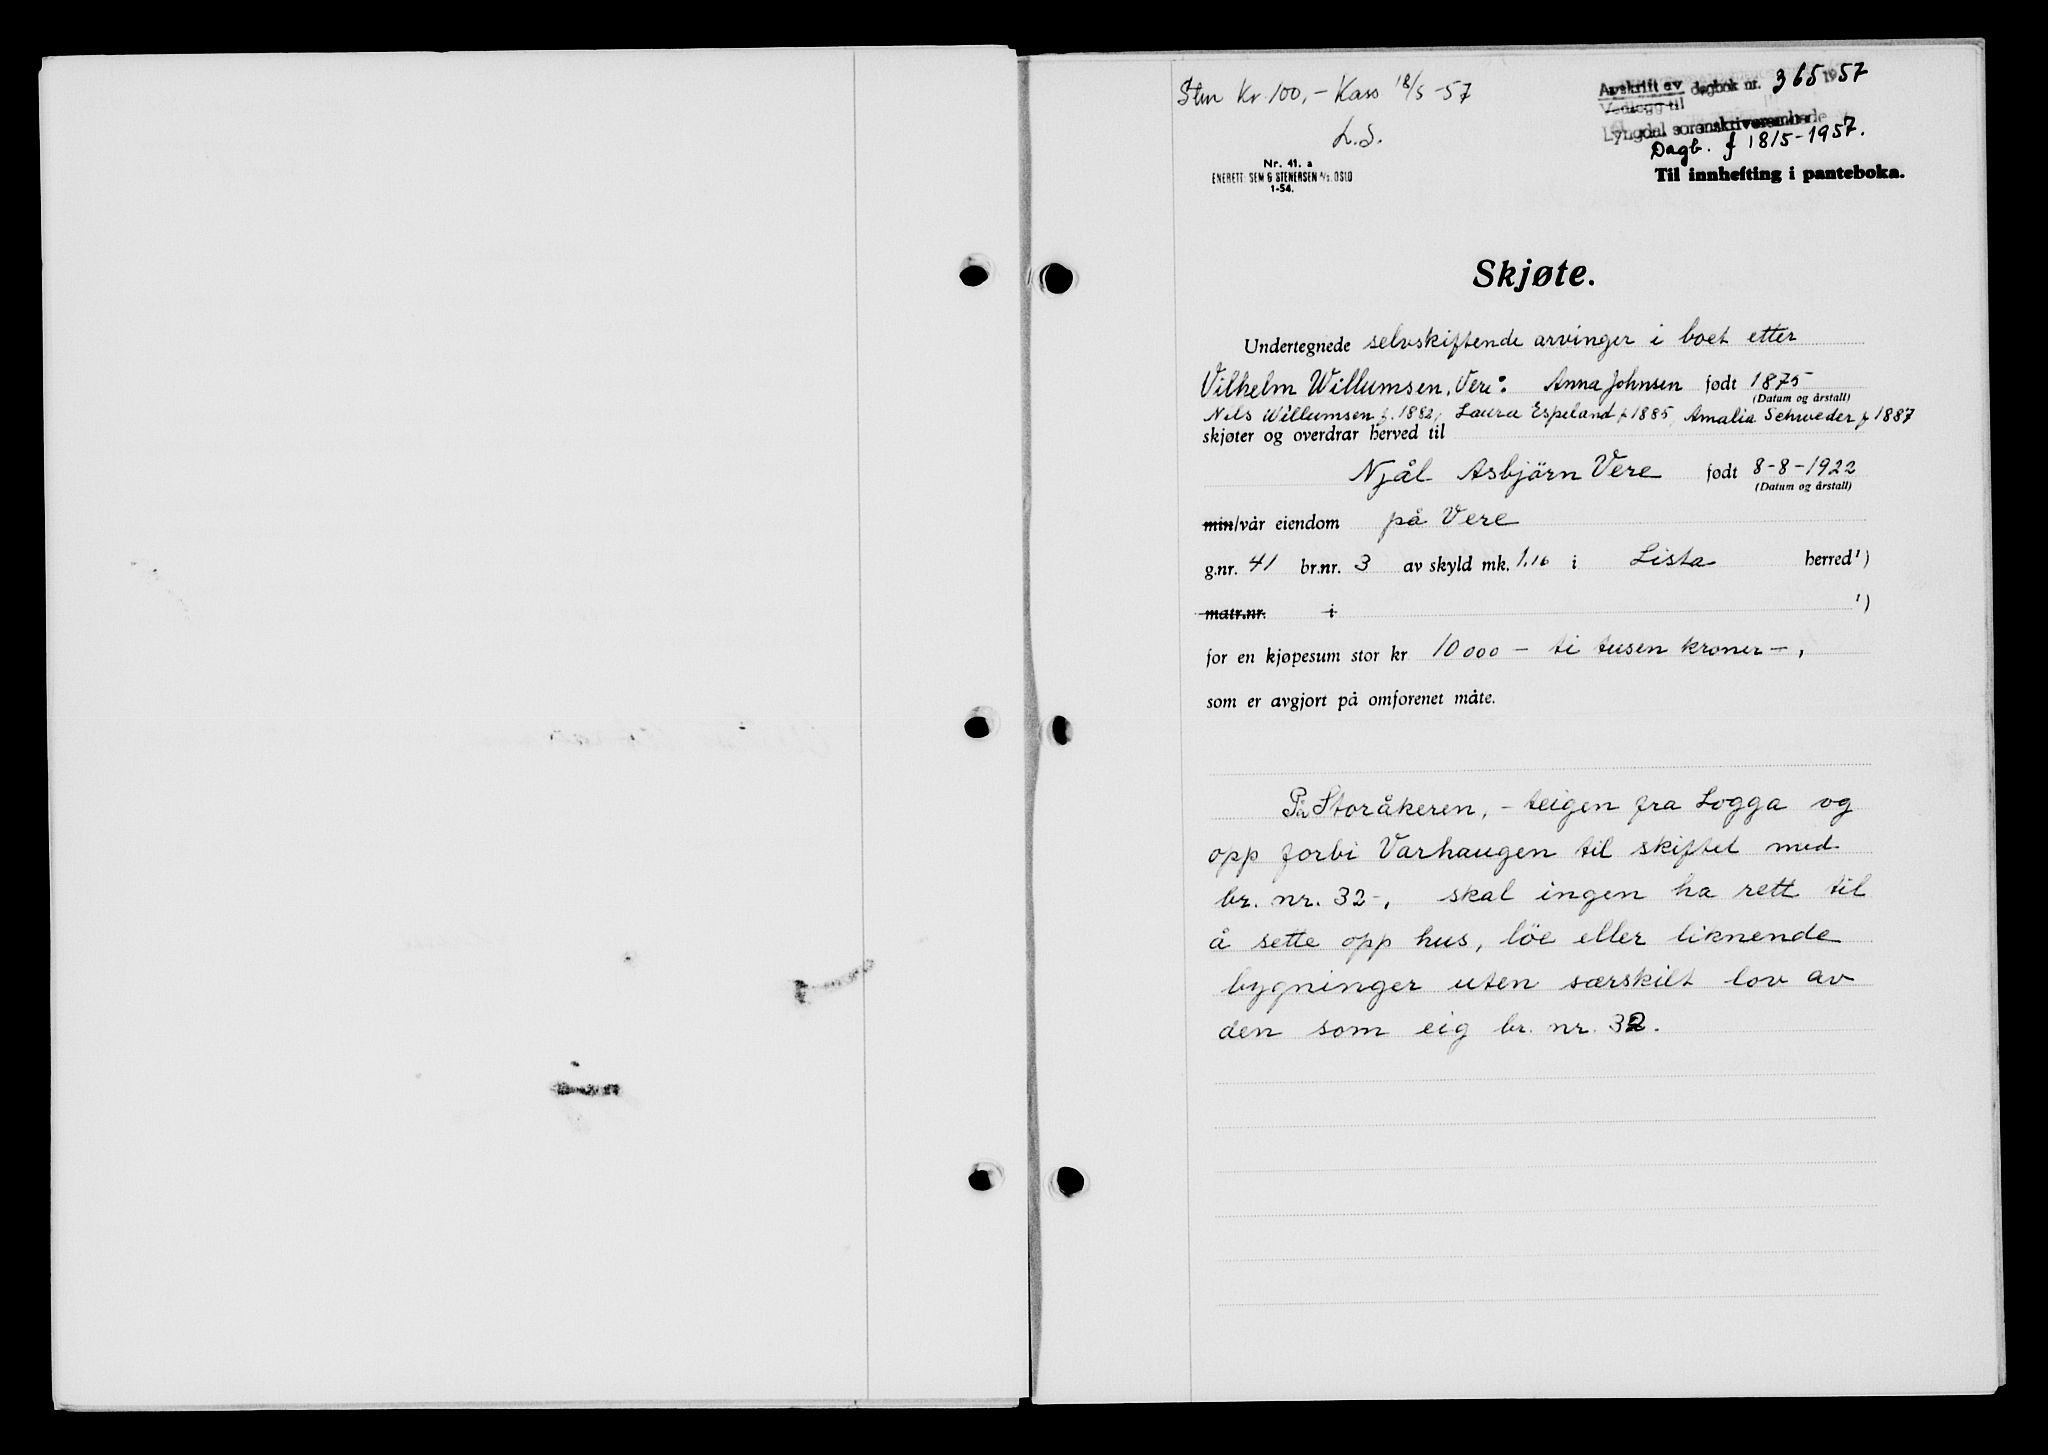 Stm Kr. 100,- Kass 18/5-57
L.S.
Nr. 41. a
ENERETT: SEM & STENERSEN A/S. OSLO
1-54.
Avskrift av dagbok nr. 365 1957
Vedlegg til
Lyngdal sorenskriverembede
Dagb. f 18/5-1957.
Til innhefting i panteboka.
Skjøte.
Undertegnede selvskiftende arvinger i boet etter
Vilhelm Willumsen, Vere: Anna Johnsen født 1875
(Datum og årstall)
Nils Willumsen f. 1882, Laura Espeland f 1885, Amalia Schweder f 1887
skjøter og overdrar herved til
Njål Asbjörn Vere født 8-8-1922
(Datum og årstall)
min/vår eiendom på Vere
g.nr. 41 br.nr. 3 av skyld mk. 1.16 i Lista herred¹)
matr.nr. i ¹)
for en kjøpesum stor kr 10 000 - ti tusen kroner -,
som er avgjort på omforenet måte.
På Storåkeren, - teigen fra Logga og
opp forbi Varhaugen til skiftet med
br. nr. 32-, skal ingen ha rett til
å sette opp hus, löe eller liknende
bygninger uten særskilt lov av
den som eig br. nr. 32.